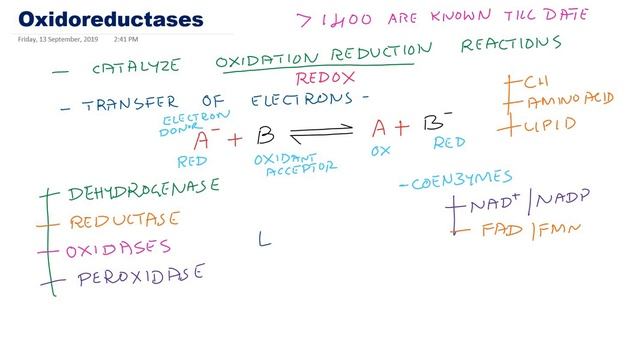 Oxidoreductases
Friday, 13 September, 2019 2:41 PM
> 1400 ARE KNOWN TILL DATE
- CATALYZE OXIDATION REDUCTION REACTIONS
REDOX
- TRANSFER OF ELECTRONS -
CH
AMINO ACID
LIPID
ELECTRON
DONOR
A⁻ + B ⇌ A + B⁻
RED OXIDANT OX RED
ACCEPTOR
DEHYDROGENASE
REDUCTASE
OXIDASES
PEROXIDASE
L
- COENZYMES
NAD⁺ / NADP
FAD / FMN